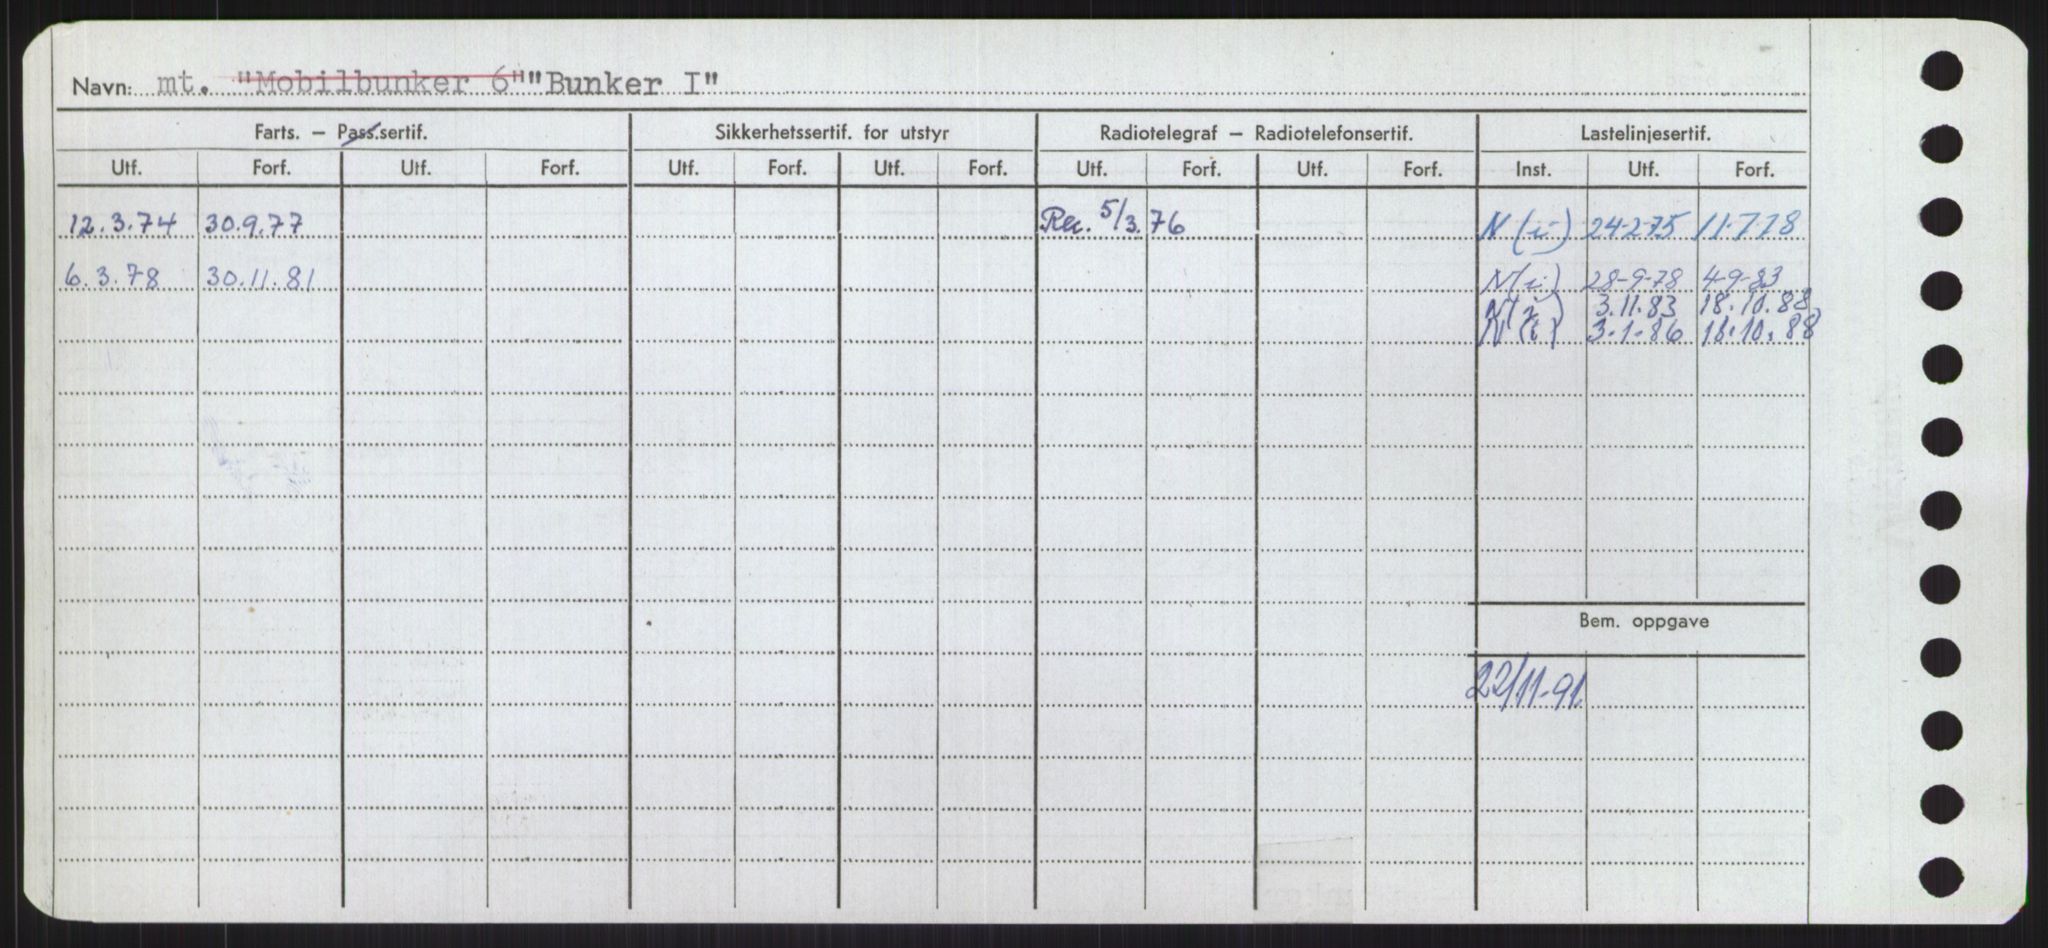 Navn: mt. "Mobilbunker 6" "Bunker I"
Farts. – Pass.sertif. Sikkerhetssertif. for utstyr Radiotelegraf – Radiotelefonsertif. Lastelinjesertif.
Utf. Forf. Utf. Forf. Utf. Forf. Utf. Forf. Utf. Forf. Utf. Forf. Inst. Utf. Forf.
12.3.74 30.9.77 Rec. 5/3.76 N (i) 24-2-75 11-7-78
6.3.78 30.11.81 N (i) 28-9-78 4-9-83
N (i) 3.11.83 18.10.88
N (i) 3.1.86 18.10.88
Bem. oppgave
22/11-91